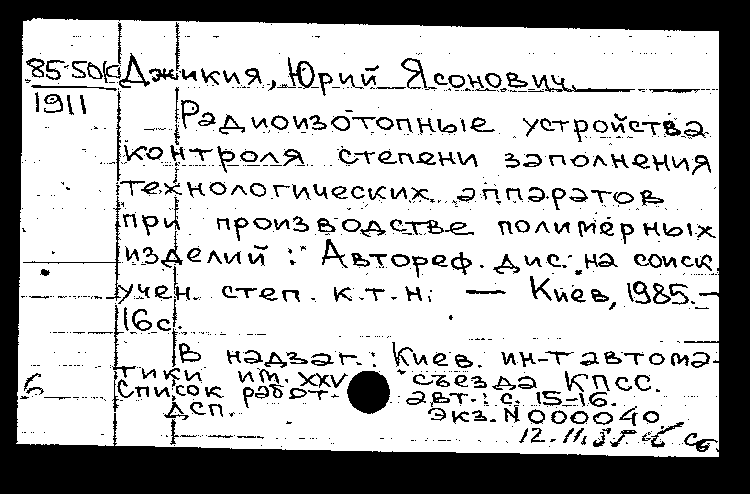 85-50 Джикия, Юрий Ясонович.
1911
Радиоизотопные устройства
контроля степени заполнения
технологических аппаратов
при производстве полимерных
изделий : Автореф. дис. на соиск.
учен. степ. к.т.н. — Киев, 1985.—
16с.
В надзаг.: Киев. ин-т автома-
тики им. XXV съезда КПСС.
6 Список работ авт.: с. 15-16.
ДСП. Экз. N 000040
12.11.85